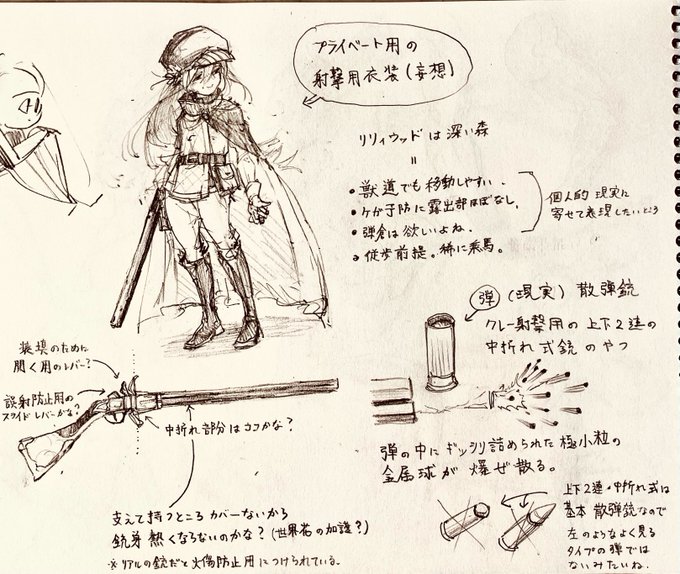 プライベート用の
射撃用衣装(妄想)
リリィウッドは深い森
=
・獣道でも移動しやすい.
・ケガ予防に露出部ほぼなし.
・弾倉は欲しいよね.
・徒歩前提。稀に乗馬。
個人的現実に
寄せて表現したいところ
弾 (現実) 散弾銃
クレー射撃用の上下2連の
中折れ式銃のやつ
装填のために
開く用のレバー?
誤射防止用の
スライドレバーかな?
中折れ部分はココかな?
弾の中にギッシリ詰められた極小粒の
金属球が爆ぜ散る。
支えて持つところカバーないから
銃身熱くならないのかな?(世界花の加護?)
※リアルの銃だと火傷防止用につけられている.
上下2連・中折れ式は
基本散弾銃なので
左のようなよく見る
タイプの弾では
ないみたいね.